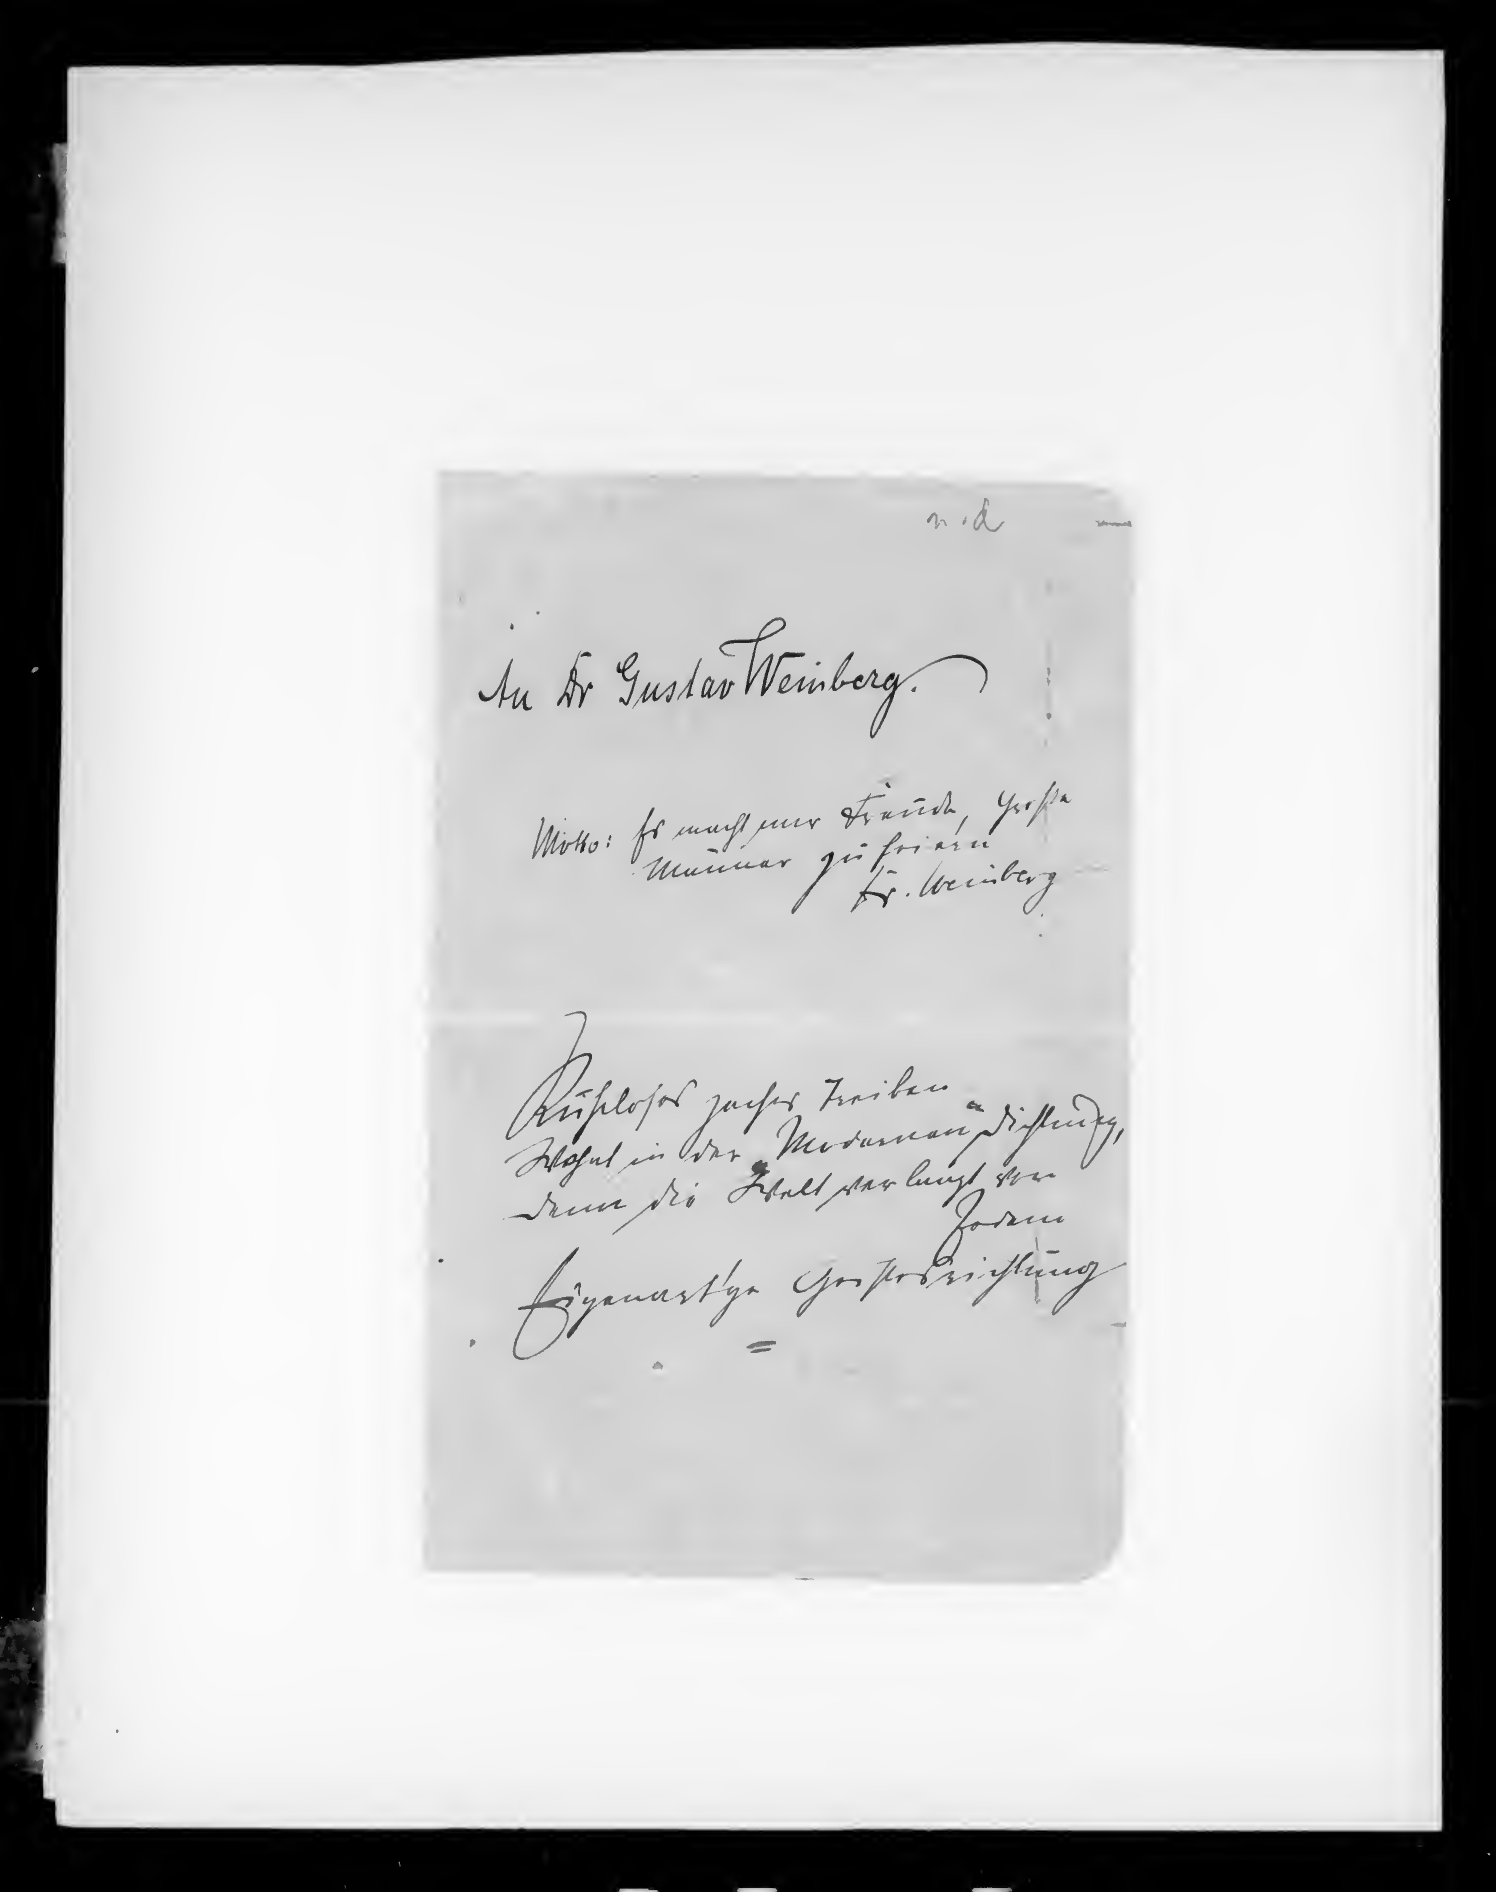 n.d
An Dr Gustav Weinberg.
Motto: Es macht mir Freude, Große
Männer zu feiern
Dr. Weinberg
Ruhloses Treiben
Wohnt in der „Modernen“ Dichtung,
denn die Welt verlangt von
Jedem
Eigenart'ge Geistesrichtung